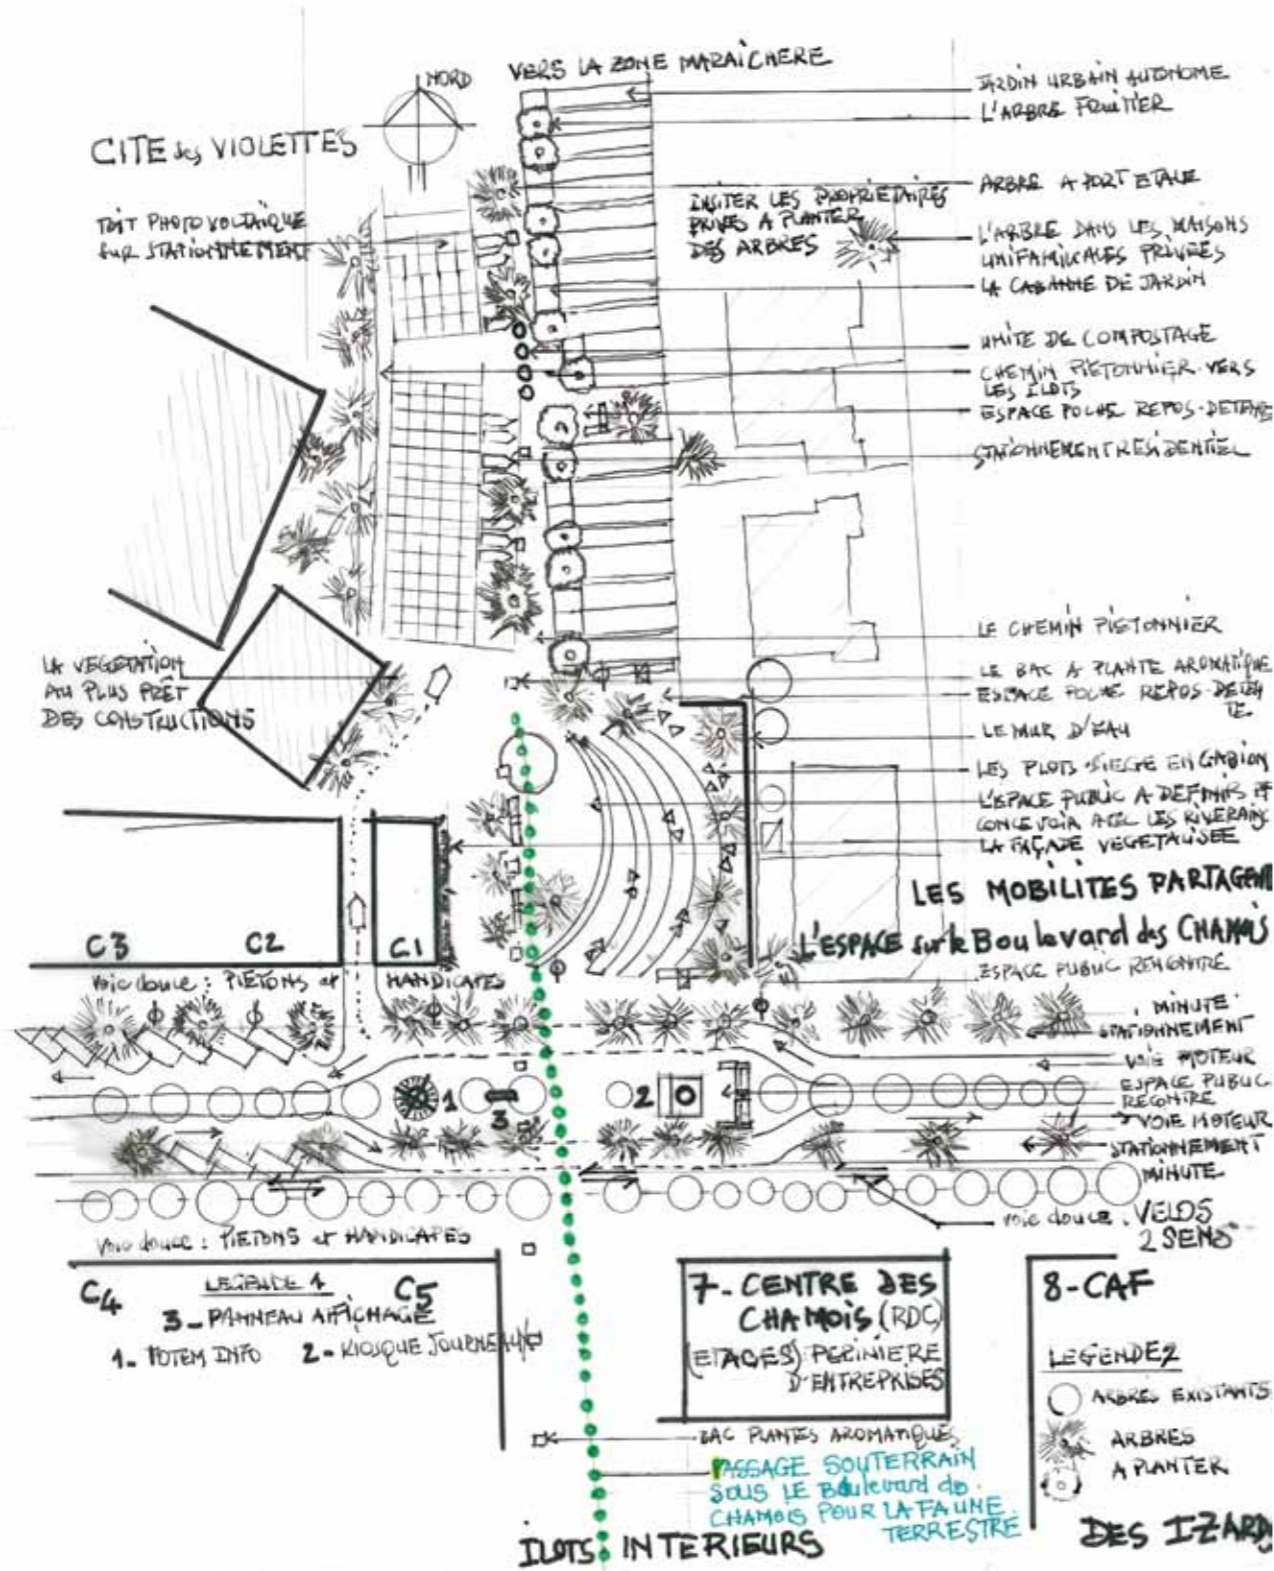 NORD
VERS LA ZONE MARAICHERE
CITE des VIOLETTES
TOIT PHOTO VOLTAIQUE
SUR STATIONNEMENT
INSITER LES PROPRIETAIRES
PRIVES A PLANTER
DES ARBRES
JARDIN URBAIN AUTONOME
L'ARBRE FRUITIER
ARBRE A PORT ETALE
L'ARBRE DANS LES MAISONS
UNIFAMILIALES PRIVEES
LA CABANNE DE JARDIN
UNITE DE COMPOSTAGE
CHEMIN PIETONNIER VERS
LES ILOTS
ESPACE POCHE REPOS-DETENTE
STATIONNEMENT RESIDENTIEL
LA VEGETATION
AU PLUS PRÊT
DES CONSTRUCTIONS
LE CHEMIN PIETONNIER
LE BAC A PLANTE AROMATIQUE
ESPACE POCHE REPOS-DETEN
TE
LE MUR D'EAU
LES PLOTS SIEGE EN GABION
L'ESPACE PUBLIC A DEFINIR ET
CONCEVOIR AVEC LES RIVERAINS
LA FAÇADE VEGETALISEE
LES MOBILITES PARTAGENT
L'ESPACE sur le Boulevard des CHAMOIS
ESPACE PUBLIC RENCONTRE
C3 C2 C1
voie douce : PIETONS et HANDICAPES
MINUTE
STATIONNEMENT
VOIE MOTEUR
ESPACE PUBLIC
RECONTRE
VOIE MOTEUR
STATIONNEMENT
MINUTE
1
3
2
voie douce : VELOS
2 SENS
voie douce : PIETONS et HANDICAPES
C4 C5
LEGENDE 1
3 - PANNEAU AFFICHAGE
1 - TOTEM INFO 2 - KIOSQUE JOURNEAUX
7 - CENTRE DES
CHAMOIS (RDC)
(ETAGES) PEPINIERE
D'ENTREPRISES
8 - CAF
LEGENDE 2
ARBRES EXISTANTS
ARBRES
A PLANTER
BAC PLANTES AROMATIQUES
PASSAGE SOUTERRAIN
SOUS LE Boulevard des
CHAMOIS POUR LA FAUNE
TERRESTRE
ILOTS INTERIEURS
DES IZARDS